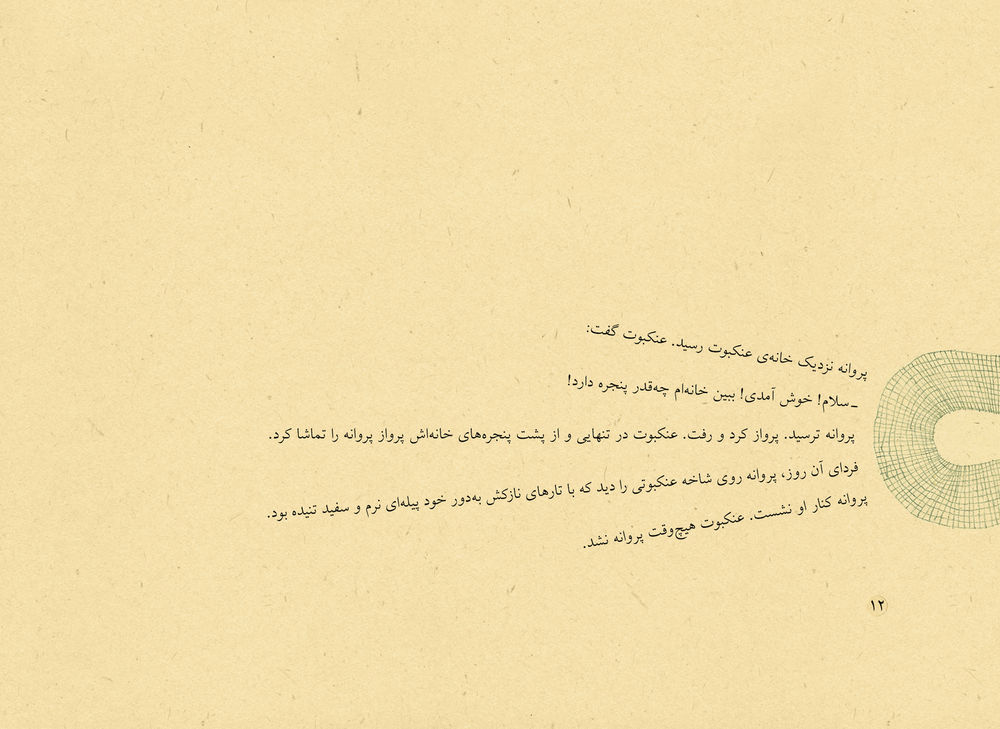 پروانه نزدیک خانه‌ی عنکبوت رسید. عنکبوت گفت:
ـ سلام! خوش آمدی! ببین خانه‌ام چه‌قدر پنجره دارد!
پروانه ترسید. پرواز کرد و رفت. عنکبوت در تنهایی و از پشت پنجره‌های خانه‌اش پرواز پروانه را تماشا کرد.
فردای آن روز، پروانه روی شاخه عنکبوتی را دید که با تارهای نازکش به‌دور خود پیله‌ای نرم و سفید تنیده بود.
پروانه کنار او نشست. عنکبوت هیچ‌وقت پروانه نشد.
۱۲